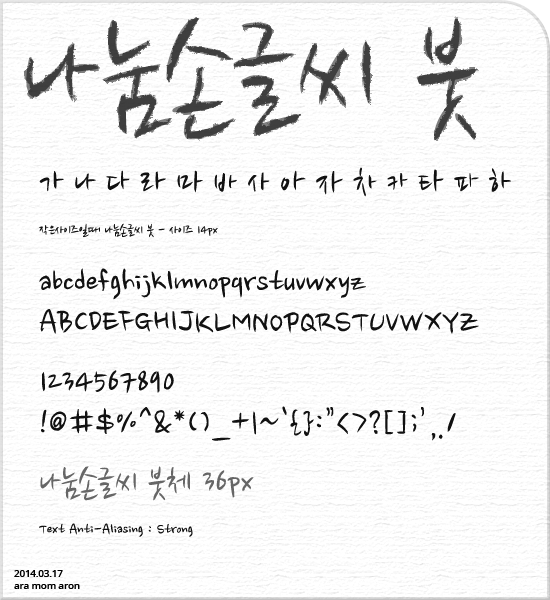 나눔손글씨 붓
가 나 다 라 마 바 사 아 자 차 카 타 파 하
작은사이즈일때 나눔손글씨 붓 - 사이즈 14px
abcdefghijklmnopqrstuvwxyz
ABCDEFGHIJKLMNOPQRSTUVWXYZ
1234567890
!@#$%^&*()_+|~`{}:"<>?[];',./
나눔손글씨 붓체 36px
Text Anti-Aliasing : Strong
2014.03.17
ara mom aron